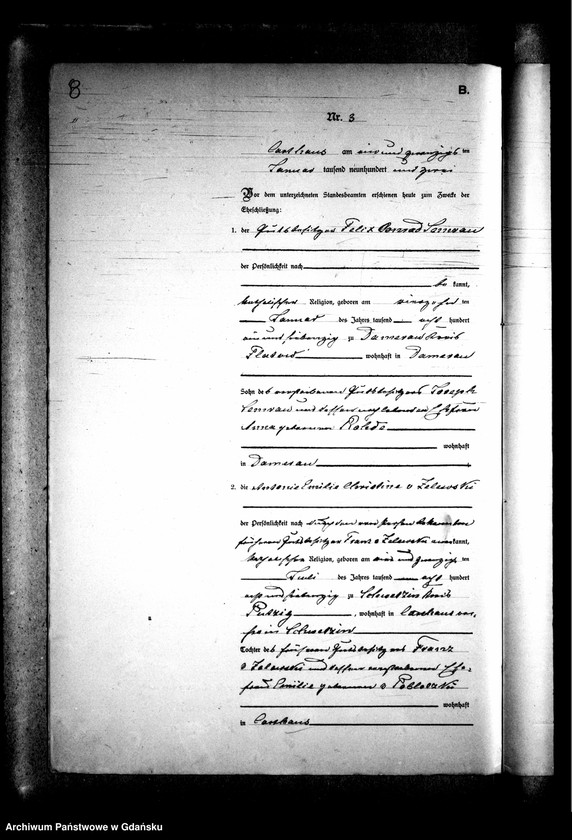 8
B.
Nr. 3
Carthaus am ein und zwanzigsten
Januar tausend neunhundert und zwei
Vor dem unterzeichneten Standesbeamten erschienen heute zum Zwecke der
Eheschließung:
1. der Gutsbesitzer Felix Conrad Semrau
der Persönlichkeit nach
be kannt,
katholischer Religion, geboren am vierzehn ten
Januar des Jahres tausend acht hundert
ein und siebenzig zu Damerau Kreis
wohnhaft in Damerau
Sohn des verstorbenen Gutsbesitzers Joseph
Semrau und dessen noch lebenden Ehefrau
Anna geborenen
wohnhaft
in Damerau
2. die Antonie Emilie Christine v Zelewski
der Persönlichkeit nach durch den von Person bekannten
früheren Gutsbesitzer Franz v Zelewski anerkannt,
katholischer Religion, geboren am ein und zwanzigsten
Juli des Jahres tausend acht hundert
acht und siebenzig zu Kreis
Putzig, wohnhaft in Carthaus vor,
her in
Tochter des früheren Gutsbesitzers Franz
v Zelewski und dessen verstorbenen Ehe-
frau Emilie geborenen v
wohnhaft
in Carthaus
Archiwum Państwowe w Gdańsku